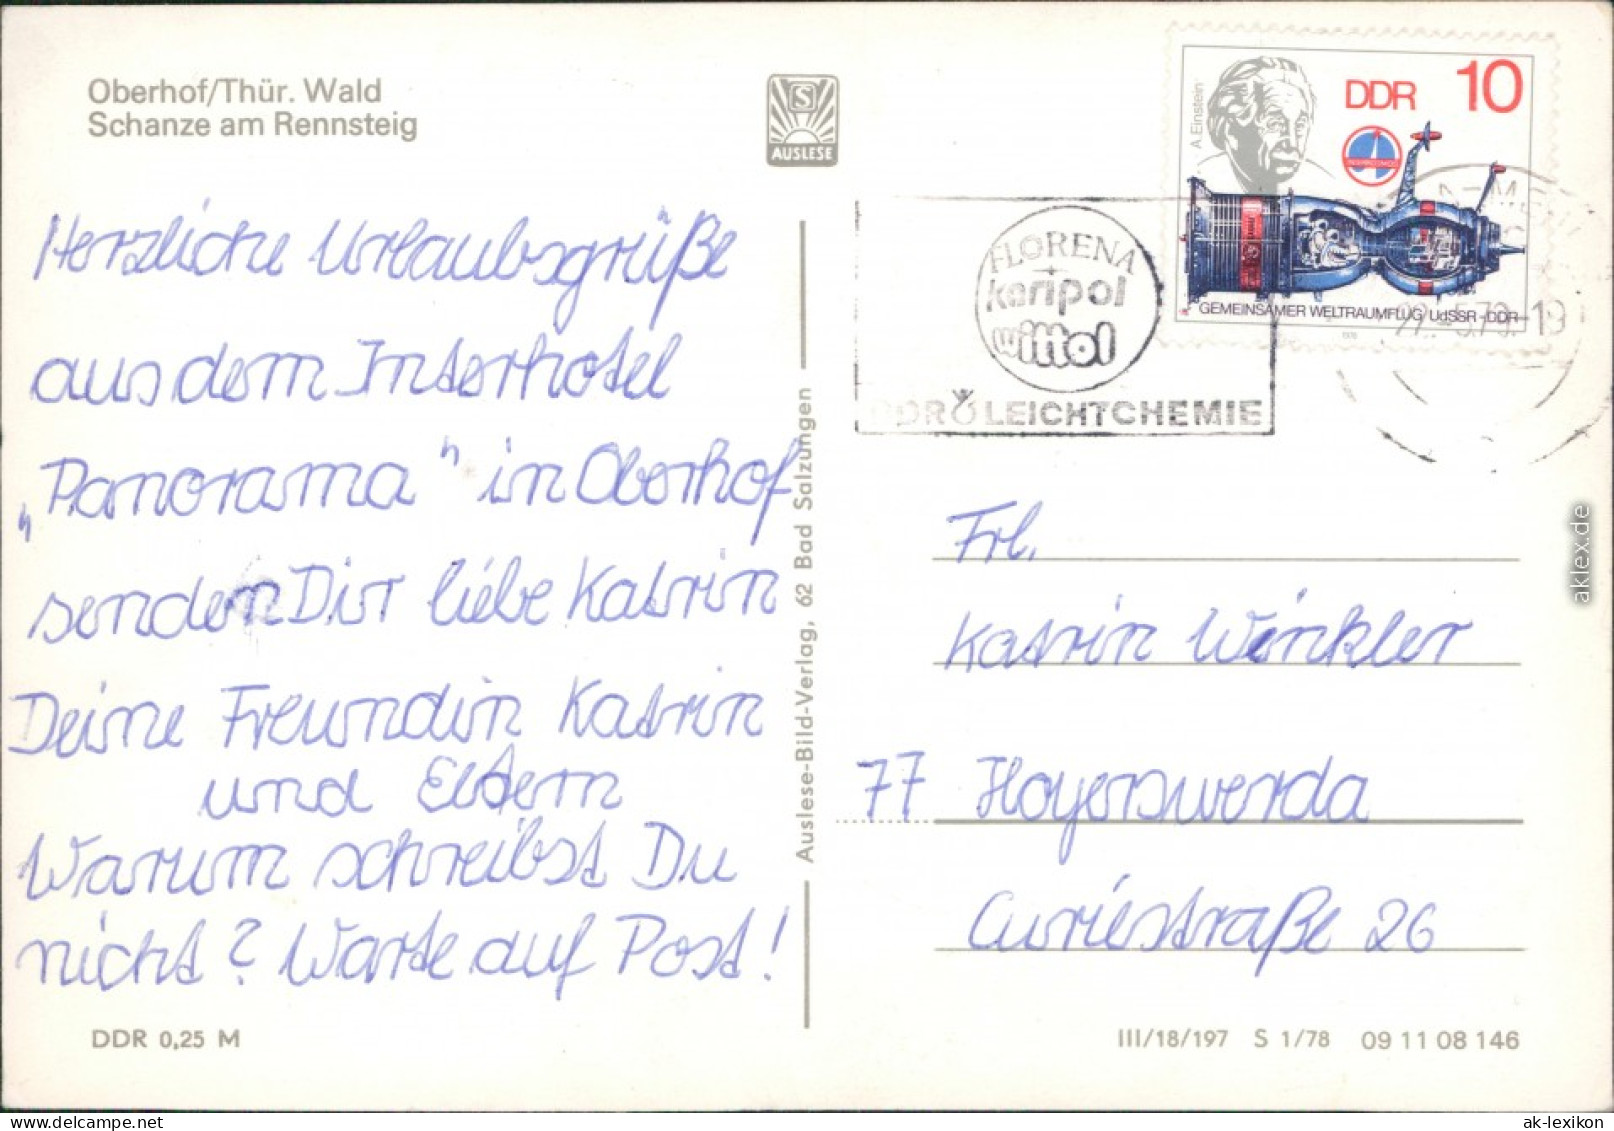 Oberhof/Thür. Wald
Schanze am Rennsteig
S
AUSLESE
Herzliche Urlaubsgrüße
aus dem Interhotel
„Panorama" in Oberhof
senden Dir liebe Katrin
Deine Freundin Katrin
und Eltern
Warum schreibst Du
nicht? Warte auf Post!
DDR 0,25 M
Auslese-Bild-Verlag, 62 Bad Salzungen
A. Einstein
DDR 10
GEMEINSAMER WELTRAUMFLUG UdSSR-DDR
FLORENA
karipol
wittol
DDR LEICHTCHEMIE
22.-5.79.-19
Frl.
Katrin Winkler
77 Hoyerswerda
Curiestraße 26
III/18/197 S 1/78 09 11 08 146
aklex.de
www.delcampe.net
ak-lexikon